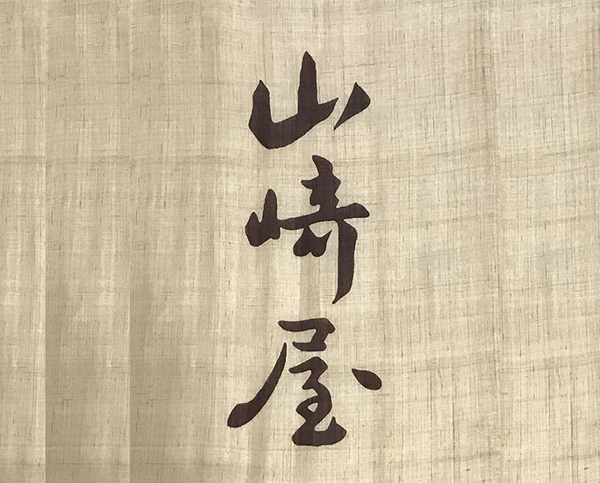 山崎屋